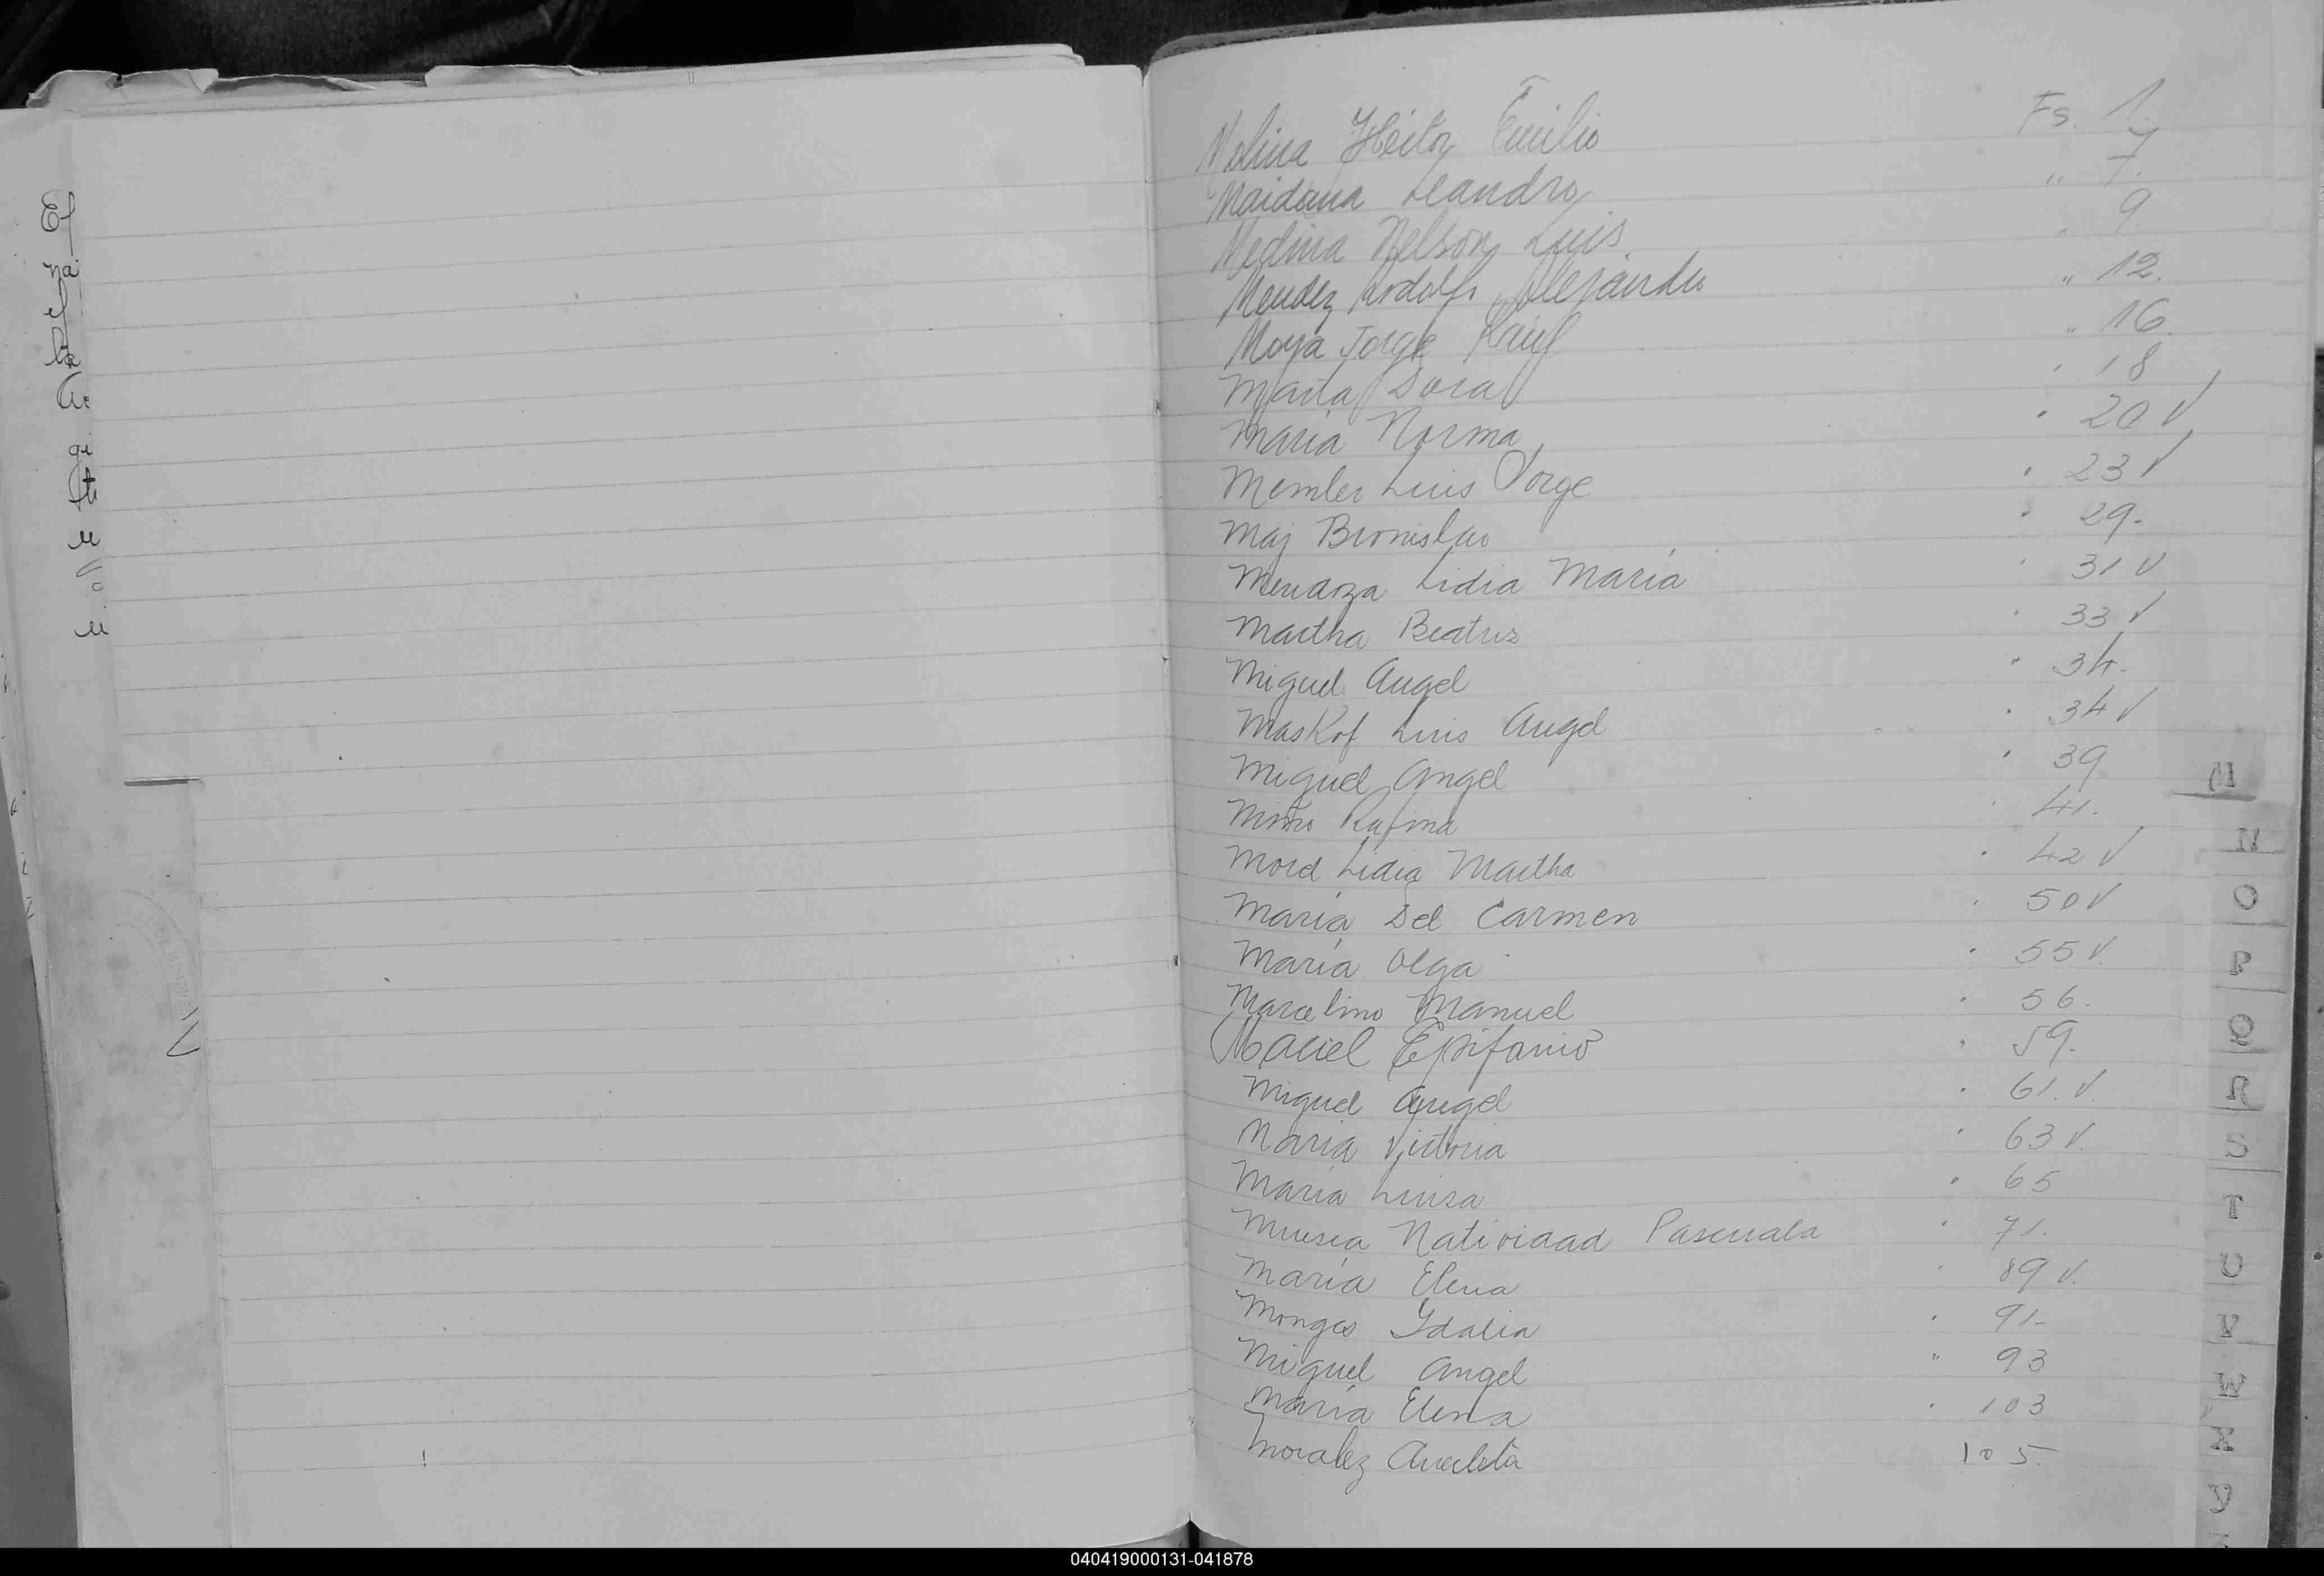 Molina Héctor Emilio Fs. 1.
Maidana Leandro " 7.
Medina Nelson Luis " 9.
Mendez Rodolfo Alejandro " 12.
Moya Jorge Raúl " 16.
Marta Dora " 18
Maria Norma " 20 V
Luis Jorge " 23 V
Maj Bronislao " 29.
Mendoza Lidia María " 31 V
Martha Beatris " 33 V
Miguel Angel " 34.
Maskof Luis Angel " 34 V
Miguel Angel " 39
Miño Rufina " 41.
Morel Lidia Martha " 42 V
María Del Carmen " 50 V
María Olga " 55 V.
Marcelino Manuel " 56.
Maciel Epifanio " 59.
Miguel Angel " 61. V.
Maria Victoria " 63 V.
Maria Luisa " 65
Natividad Pascuala " 71.
María Elena " 89 V.
Monges Ydalia " 91-
Miguel Angel " 93
María Elena " 103
Moralez Anacleta 105
M
N
O
P
Q
R
S
T
U
V
W
X
Y
040419000131-041878